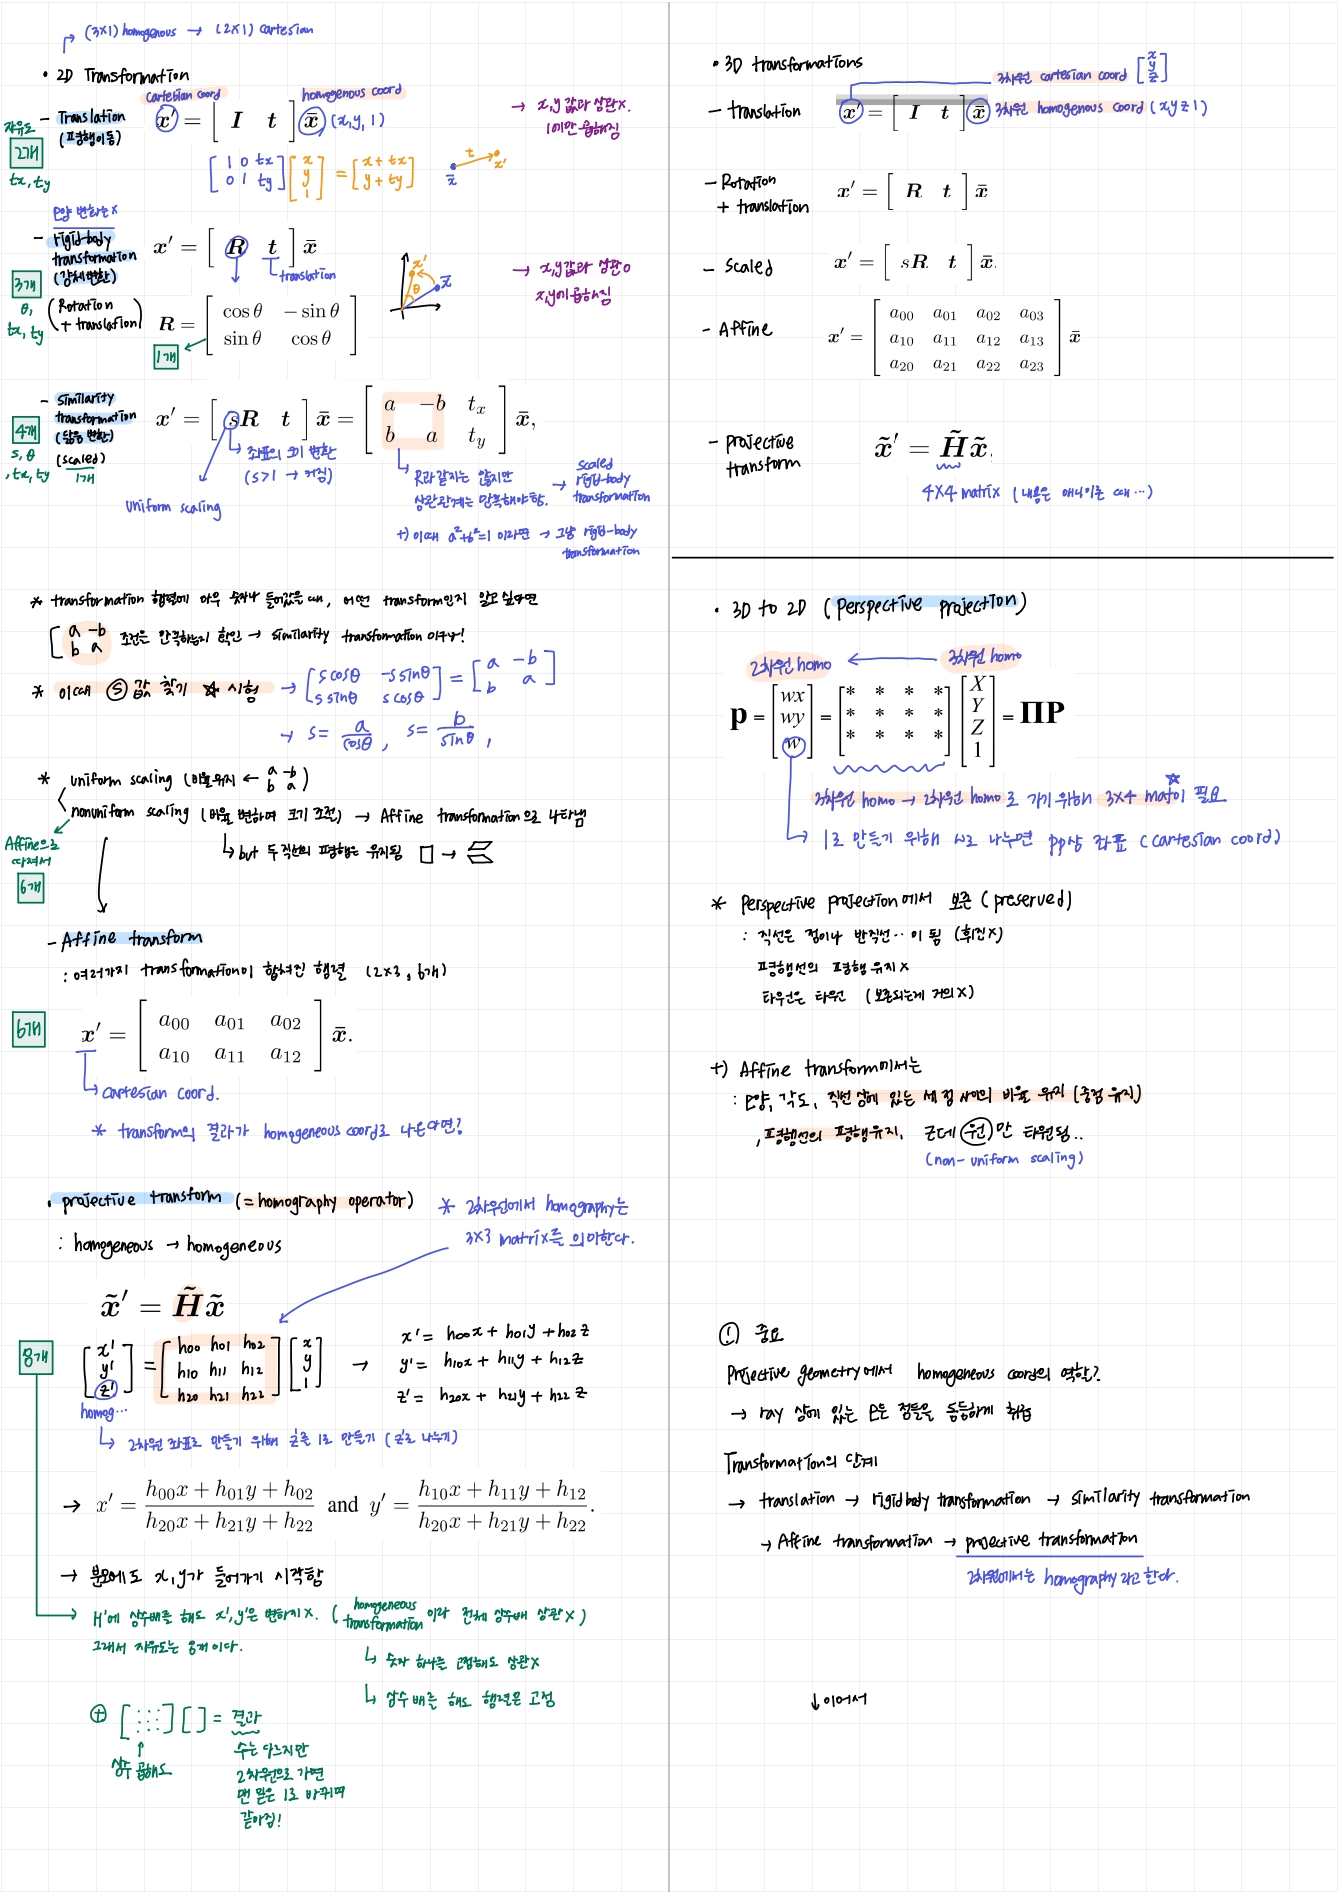 (3×1) homogenous → (2×1) cartesian
• 2D Transformation
cartesian coord
homogenous coord
자유도
2개
tx, ty
- Translation
(평행이동)
x' = [ I t ] x̄ (x, y, 1)
→ x,y 값과 상관X.
1에만 곱해짐
[ 1 0 tx
0 1 ty ] [ x y 1 ] = [ x + tx
y + ty ]
t
x̄
x'
모양 변화는 X
- rigid-body
transformation
(강체변환)
(Rotation
+ translation)
3개
θ,
tx, ty
x' = [ R t ] x̄
translation
→ x,y값과 상관O
x,y에 곱해짐
R = [ cos θ − sin θ
sin θ cos θ ]
1개
x'
θ
x̄
- Similarity
transformation
(닮음 변환)
(scaled)
1개
4개
s, θ
, tx, ty
x' = [ sR t ] x̄ = [ a −b tx
b a ty ] x̄,
좌표의 크기 변환
(s>1 → 커짐)
uniform scaling
R과 같지는 않지만
상관관계는 만족해야함.
→ scaled
rigid-body
transformation
+) 이때 a²+b²=1 이라면 → 그냥 rigid-body
transformation
* transformation 행렬에 아무 숫자나 들어갔을 때, 어떤 transform인지 알고 싶다면
[ a -b
b a 조건을 만족하는지 확인 → similarity transformation 이구나!
* 이때 ⓢ 값 찾기 ☆ 시험 → [ s cosθ -s sinθ
s sinθ s cosθ ] = [ a -b
b a ]
→ s = a / cosθ , s = b / sinθ ,
* uniform scaling (비율유지 ← a -b
b a )
nonuniform scaling (비율 변하며 크기 조절) → Affine transformation으로 나타냄
↳ but 두 직선의 평행은 유지됨 □ → ▱
Affine으로
따져서
6개
- Affine transform
: 여러가지 transformation이 합쳐진 행렬 (2×3, 6개)
6개
x' = [ a00 a01 a02
a10 a11 a12 ] x̄.
↳ cartesian coord.
* transform의 결과가 homogeneous coord로 나온다면?
• projective transform (= homography operator)
: homogeneous → homogeneous
* 2차원에서 homography는
3×3 matrix를 의미한다.
x̃' = H̃ x̃
8개
[ x'
y'
z' ] = [ h00 h01 h02
h10 h11 h12
h20 h21 h22 ] [ x
y
1 ] →
x' = h00x + h01y + h02 z
y' = h10x + h11y + h12z
z' = h20x + h21y + h22 z
homog…
↳ 2차원 좌표로 만들기 위해 z'를 1로 만들기 (z'로 나누기)
→ x' = h00x + h01y + h02 / h20x + h21y + h22 and y' = h10x + h11y + h12 / h20x + h21y + h22 .
→ 분모에도 x,y가 들어가기 시작함
→ H'에 상수배를 해도 x',y'은 변하지X. ( homogeneous
transformation 이라 전체 상수배 상관X )
그래서 자유도는 8개 이다.
↳ 숫자 하나를 고정해도 상관X
↳ 상수 배를 해도 행렬은 고정
⊕ [ ] [ ] = 결과
상수 곱해도
수는 다르지만
2차원으로 가면
맨 밑은 1로 바뀌며
같아짐!
• 3D transformations
3차원 cartesian coord [ x y z ]
- translation
x' = [ I t ] x̄ 3차원 homogenous coord (x y z 1)
- Rotation
+ translation
x' = [ R t ] x̄
- Scaled
x' = [ sR t ] x̄.
- Affine
x' = [ a00 a01 a02 a03
a10 a11 a12 a13
a20 a21 a22 a23 ] x̄
- projective
transform
x̃' = H̃ x̃.
4×4 matrix (내용은 애니이론 때…)
• 3D to 2D (perspective projection)
2차원 homo ← 3차원 homo
p = [ wx
wy
w ] = [ * * * *
* * * *
* * * * ] [ X
Y
Z
1 ] = ΠP
3차원 homo → 2차원 homo로 가기 위해 3×4 mat이 필요
↳ 1로 만들기 위해 w로 나누면 pp상 좌표 (cartesian coord)
* Perspective projection에서 보존 (preserved)
: 직선은 점이나 반직선‥이 됨 (휘진X)
평행선의 평행 유지X
타원은 타원 (보존되는게 거의X)
+) Affine transform에서는
: 모양, 각도, 직선 상에 있는 세 점 사이의 비율 유지 (중점 유지)
, 평행선의 평행유지, 근데 원만 타원됨..
(non-uniform scaling)
① 중요
Projective geometry에서 homogeneous coord의 역할?
→ ray 상에 있는 모든 점들을 동등하게 취급
Transformation의 단계
→ translation → rigidbody transformation → similarity transformation
→ Affine transformation → projective transformation
2차원에서는 homography라고 한다.
↓ 이어서